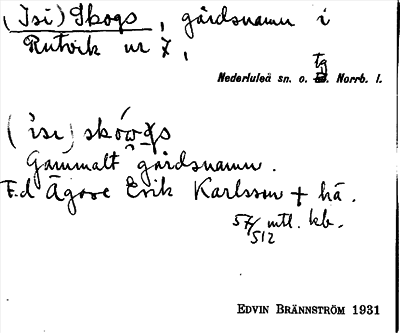 (Isi) Skogs, gårdsnamn i
Rutvik nr 7,
tg
Nederluleå sn. o. Norrb. l.
(isi) skówgs
Gammalt gårdsnamn.
F.d Ägare Erik Karlsson + hä.
57/512 mtl. kb.
EDVIN BRÄNNSTRÖM 1931